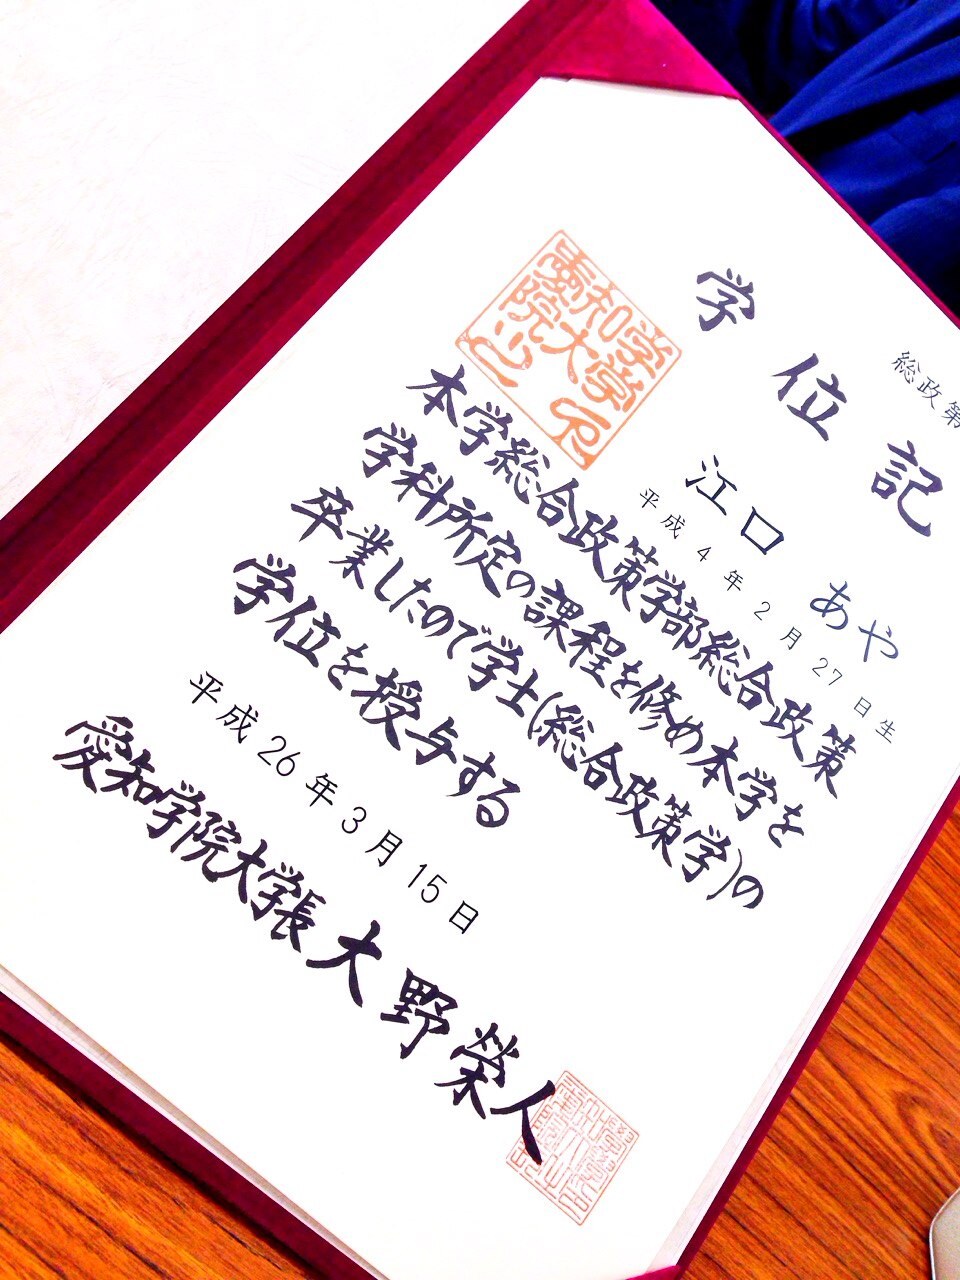 学位記
総政第
江口 あや
平成4年2月27日生
本学総合政策学部総合政策
学科所定の課程を修め本学を
卒業したので学士(総合政策学)の
学位を授与する
平成26年3月15日
愛知学院大学長 大野榮人
愛知学
院大学
之印